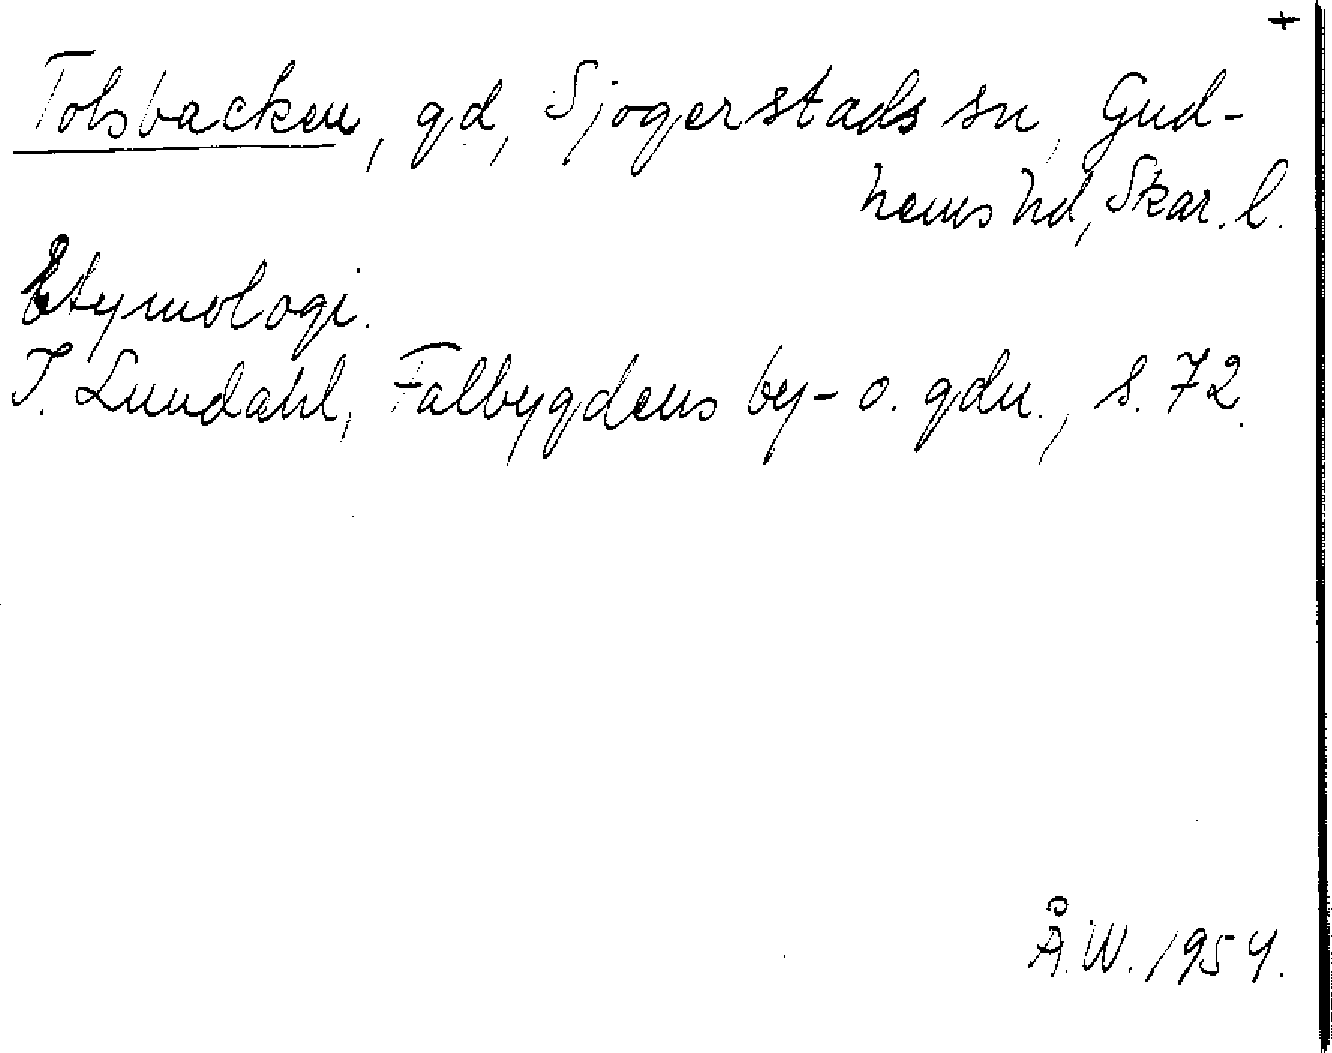 +
Tolsbacken, gd, Sjogerstads sn, Gud-
hems hd, Skar. l.
Etymologi.
I. Lundahl, Falbygdens by- o. gdn., s. 72.
Å.W. 1954.